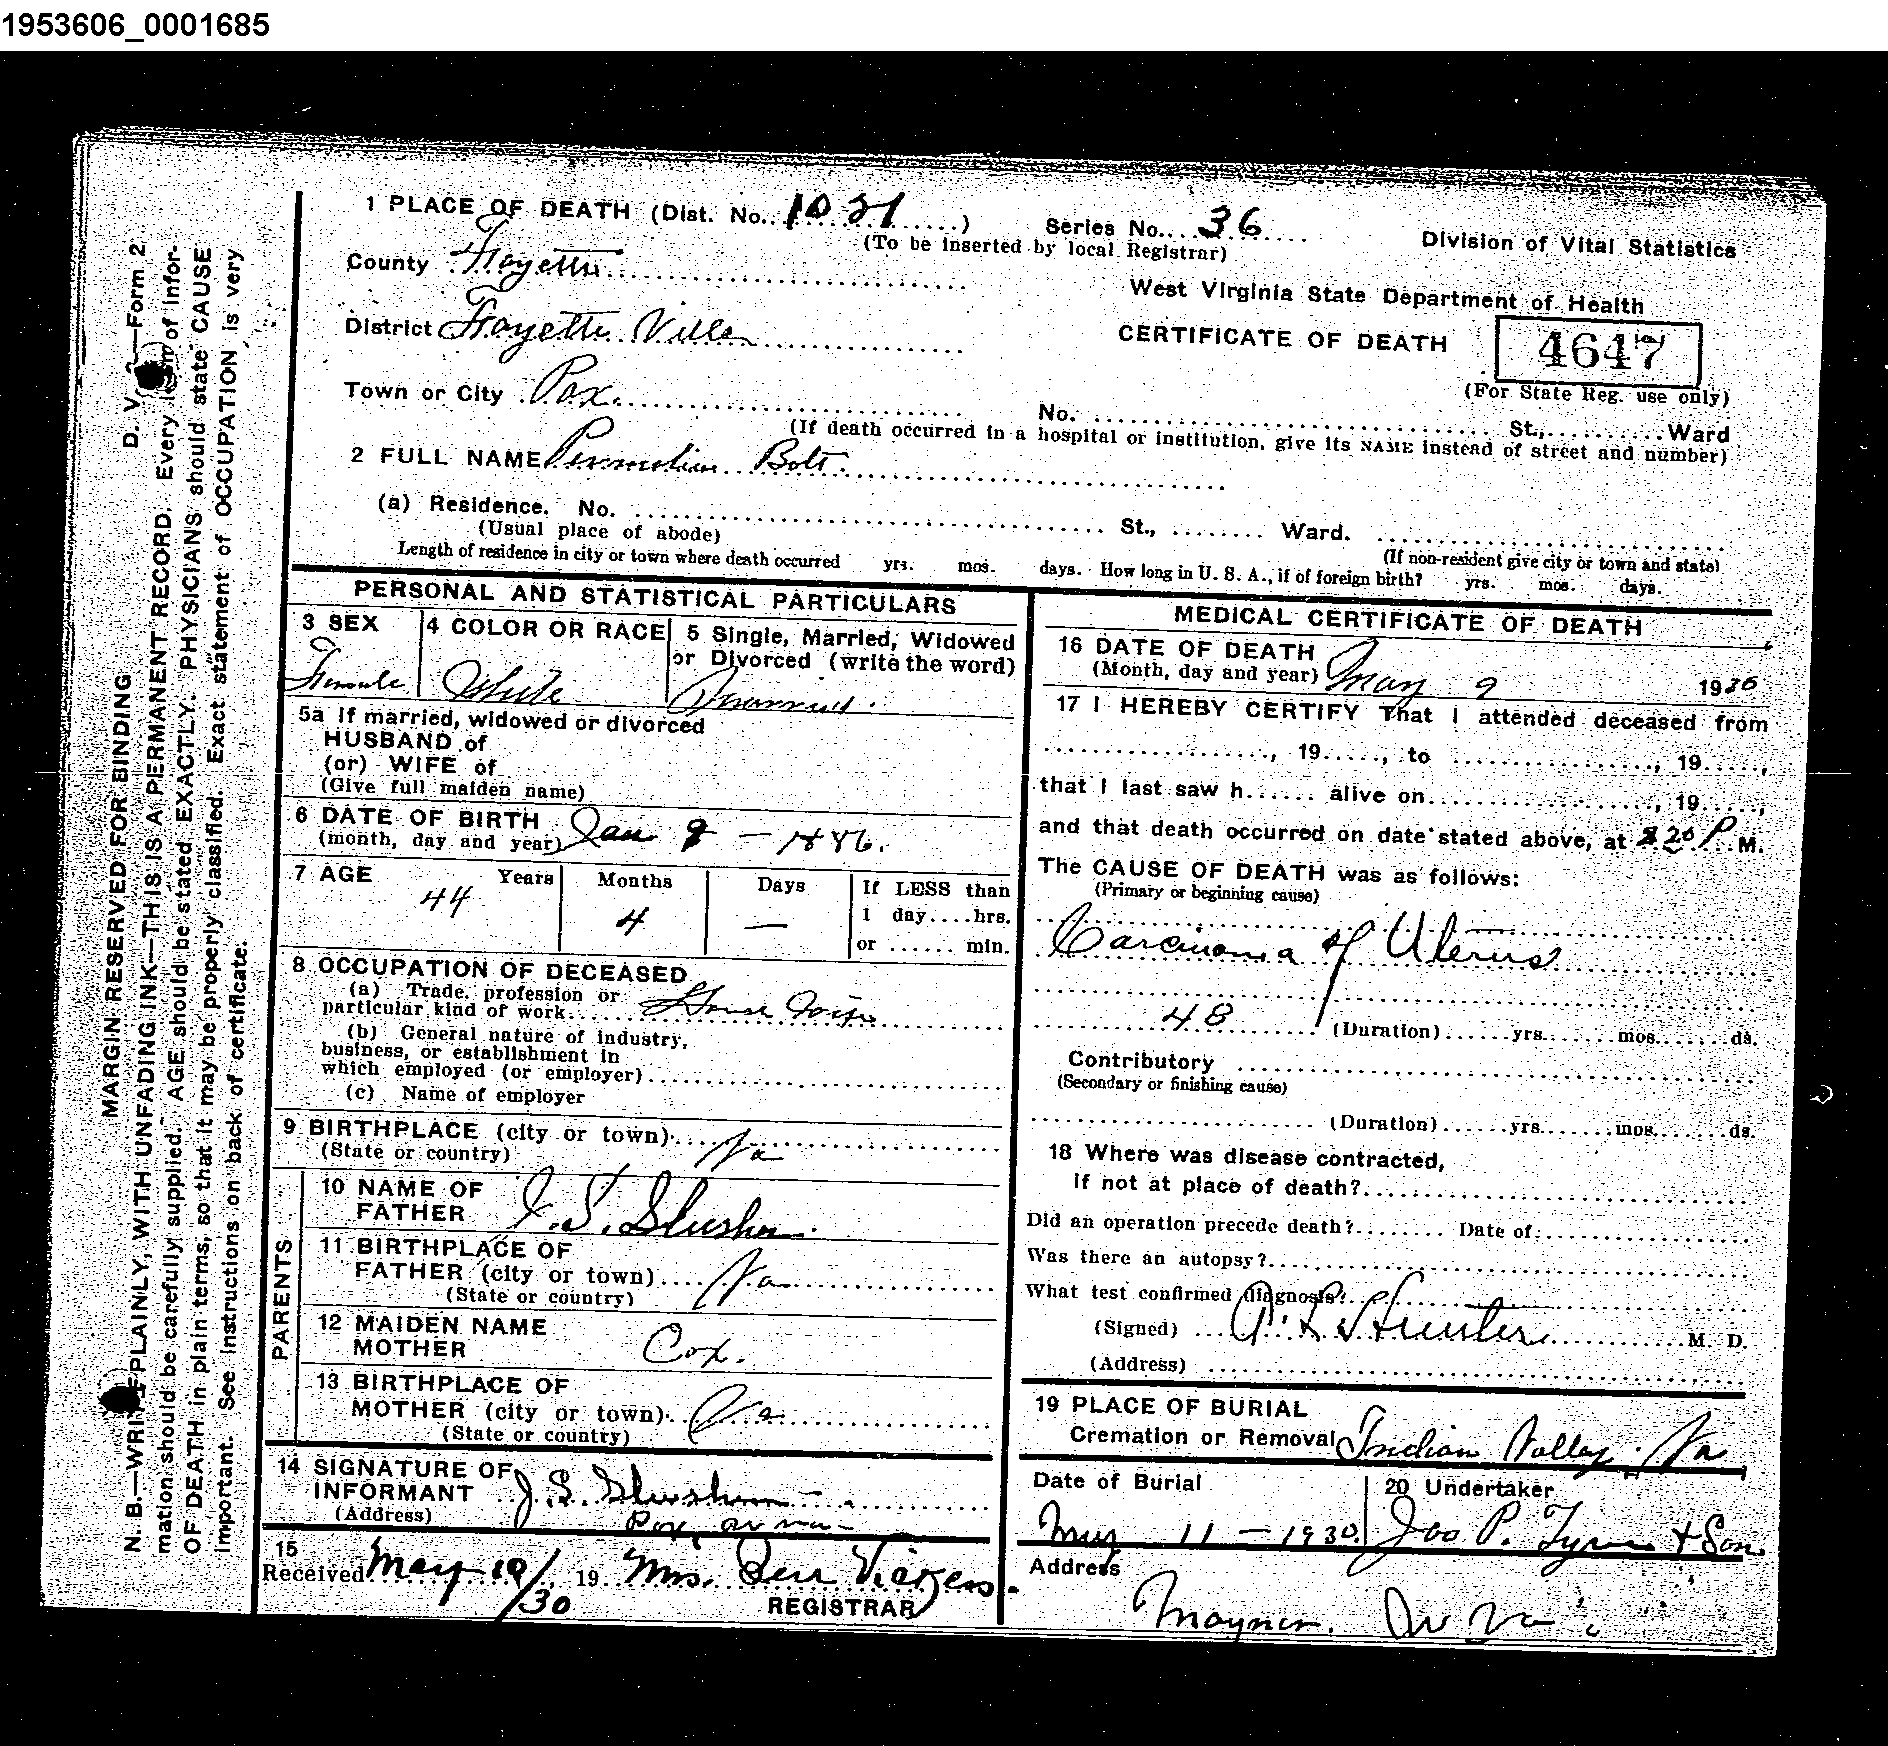 1953606_0001685
1 PLACE OF DEATH (Dist. No. 1021) Series No. 36 Division of Vital Statistics
(To be inserted by local Registrar)
County Fayette
West Virginia State Department of Health
District Fayette Ville
CERTIFICATE OF DEATH 4647
(For State Reg. use only)
Town or City Pax.
No. St., Ward
(If death occurred in a hospital or institution, give its NAME instead of street and number)
2 FULL NAME Bolt.
(a) Residence. No. St., Ward.
(Usual place of abode) (If non-resident give city or town and state)
Length of residence in city or town where death occurred yrs. mos. days. How long in U. S. A., if of foreign birth? yrs. mos. days.
PERSONAL AND STATISTICAL PARTICULARS
3 SEX 4 COLOR OR RACE 5 Single, Married, Widowed
or Divorced (write the word)
Female White
5a If married, widowed or divorced
HUSBAND of
(or) WIFE of
(Give full maiden name)
6 DATE OF BIRTH Jan 9 — 1886.
(month, day and year)
7 AGE Years Months Days If LESS than
44 4 — 1 day....hrs.
or ...... min.
8 OCCUPATION OF DECEASED
(a) Trade, profession or
particular kind of work House Wife
(b) General nature of industry,
business, or establishment in
which employed (or employer)
(c) Name of employer
9 BIRTHPLACE (city or town) Va
(State or country)
PARENTS
10 NAME OF
FATHER J. S. Slusher.
11 BIRTHPLACE OF
FATHER (city or town) Va
(State or country)
12 MAIDEN NAME
MOTHER Cox.
13 BIRTHPLACE OF
MOTHER (city or town) Va
(State or country)
14 SIGNATURE OF
INFORMANT J. S. Slusher
(Address) Pax, W Va
15
Received May 10/30 19 Mrs. Vickers.
REGISTRAR
MEDICAL CERTIFICATE OF DEATH
16 DATE OF DEATH
(Month, day and year) May 9 1930
17 I HEREBY CERTIFY That I attended deceased from
, 19....., to , 19.....,
that I last saw h...... alive on , 19.....,
and that death occurred on date stated above, at 20 P. M.
The CAUSE OF DEATH was as follows:
(Primary or beginning cause)
Carcinoma of Uterus
48 (Duration)......yrs.......mos.......ds.
Contributory
(Secondary or finishing cause)
(Duration)......yrs.......mos.......ds.
18 Where was disease contracted,
if not at place of death?
Did an operation precede death? Date of
Was there an autopsy?
What test confirmed diagnosis?
(Signed) M. D.
(Address)
19 PLACE OF BURIAL
Cremation or Removal Indian Valley, Va
Date of Burial 20 Undertaker
May 11 — 1930 Jas P. Tyree & Son.
Address
W Va
D. V. S.—Form 2
MARGIN RESERVED FOR BINDING
N. B.—WRITE PLAINLY, WITH UNFADING INK—THIS IS A PERMANENT RECORD. Every item of infor-
mation should be carefully supplied. AGE should be stated EXACTLY. PHYSICIANS should state CAUSE
OF DEATH in plain terms, so that it may be properly classified. Exact statement of OCCUPATION is very
important. See instructions on back of certificate.